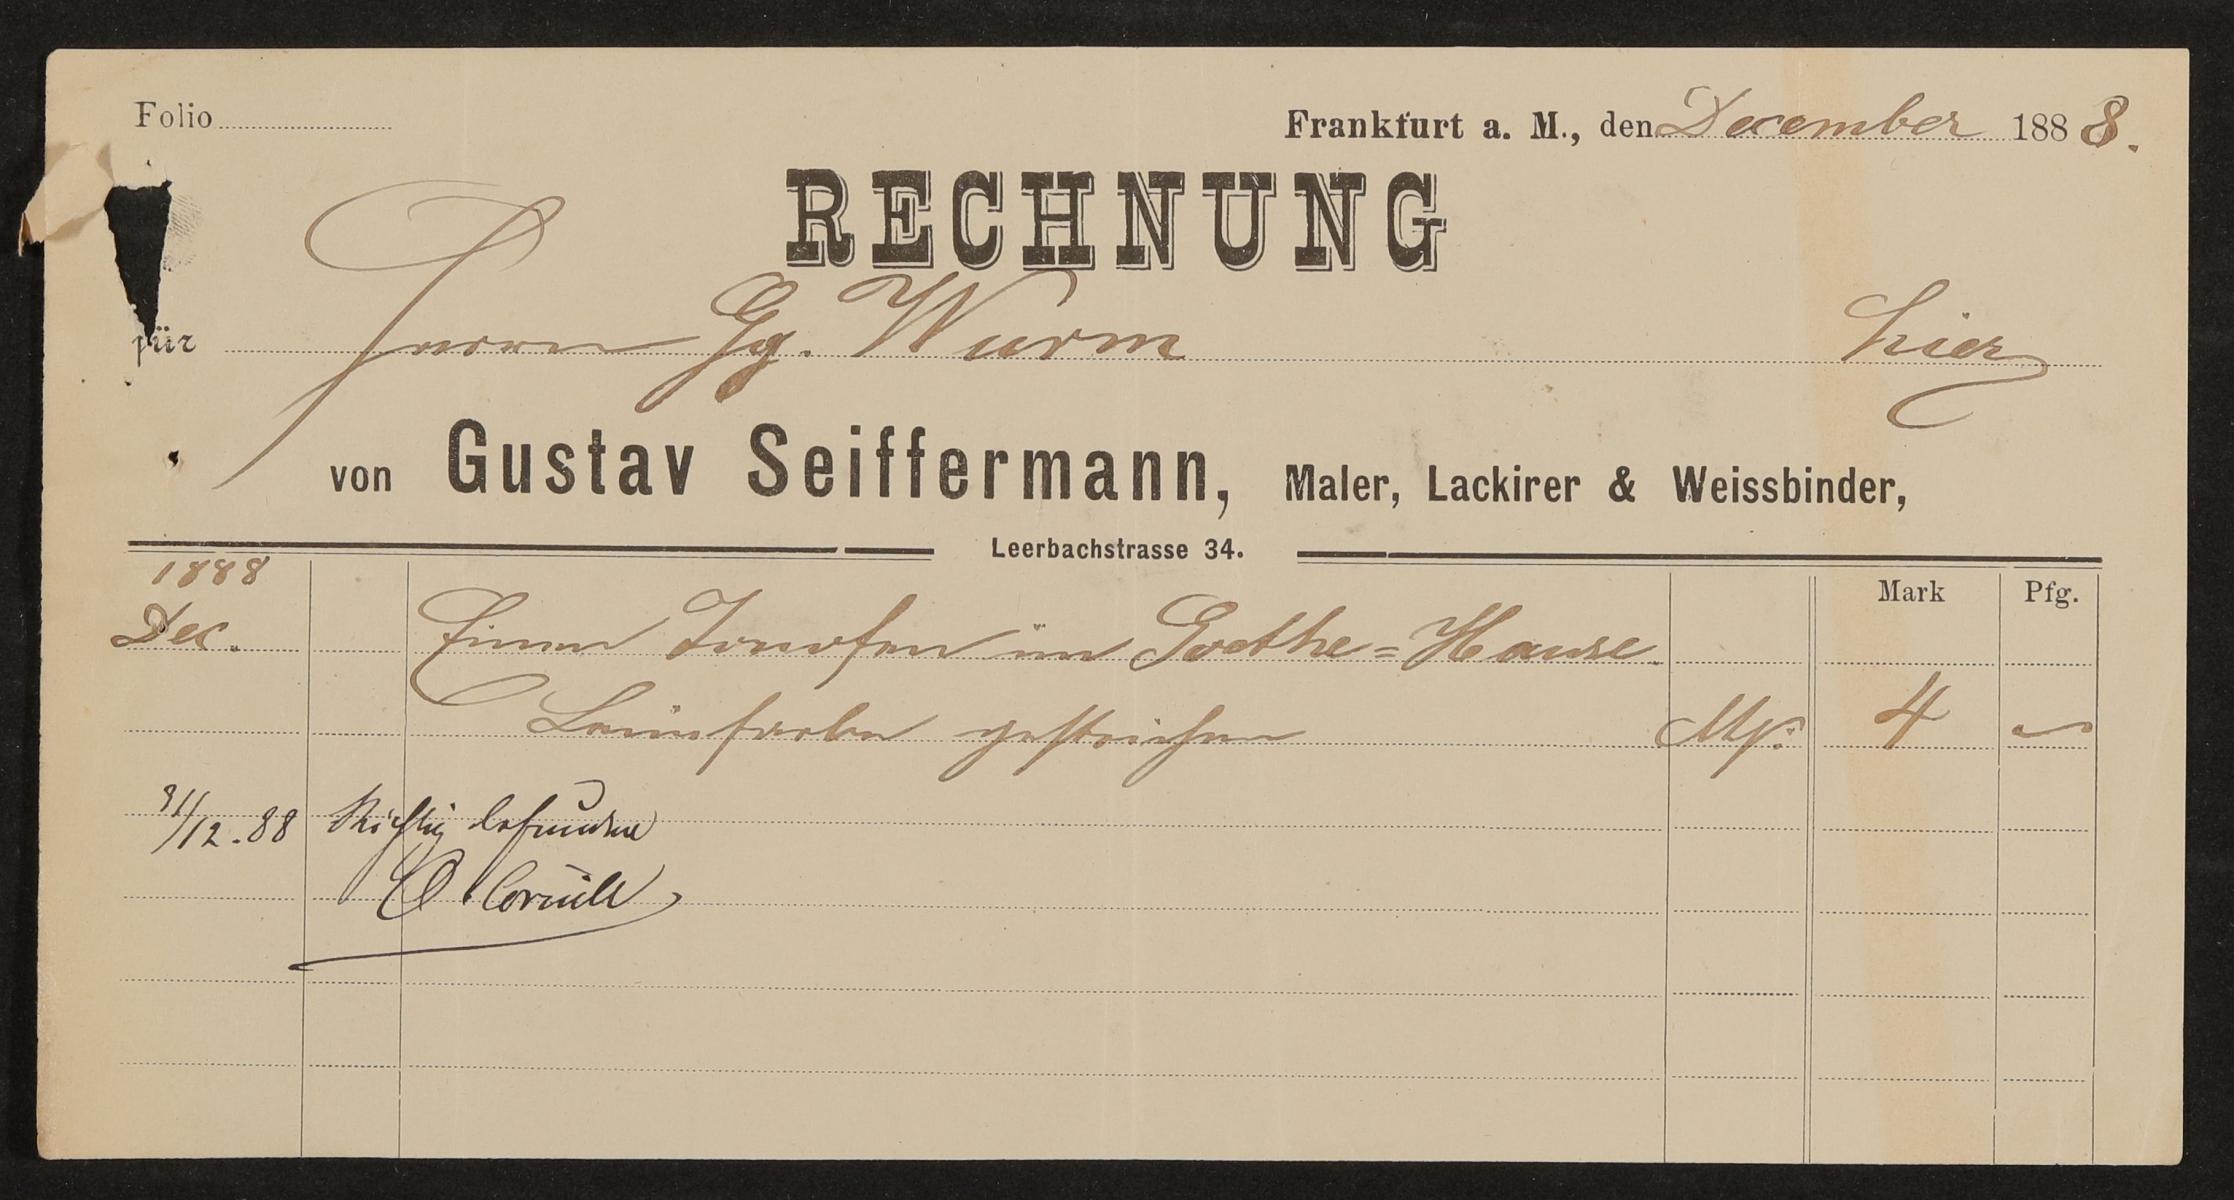 Folio
Frankfurt a. M., den December 1888.
RECHNUNG
für Herrn Gg. Wurm hier
von Gustav Seiffermann, Maler, Lackirer & Weissbinder,
Leerbachstrasse 34.
1888
Mark Pfg.
Dec. Einen im Goethe=Hause
Leimfarbe gestrichen Mk. 4 —
31/12.88 Richtig befunden
O. Cornill